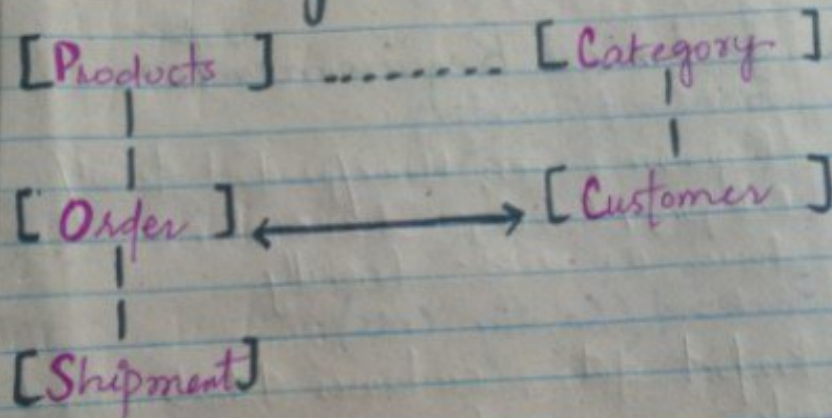 [Products] ........ [Category]
[Order] ↔ [Customer]
[Shipment]